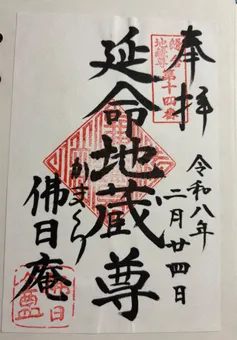 奉拝
地蔵尊
第十四番
令和八年
二月廿四日
延命地蔵尊
かまくら
佛日庵